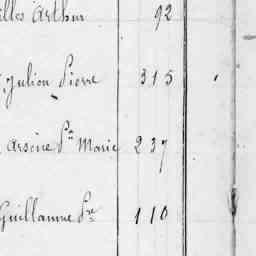 illes Arthur 92
Julien Pierre 315
Arsène Pre Marie 237
Guillaume Pre 110